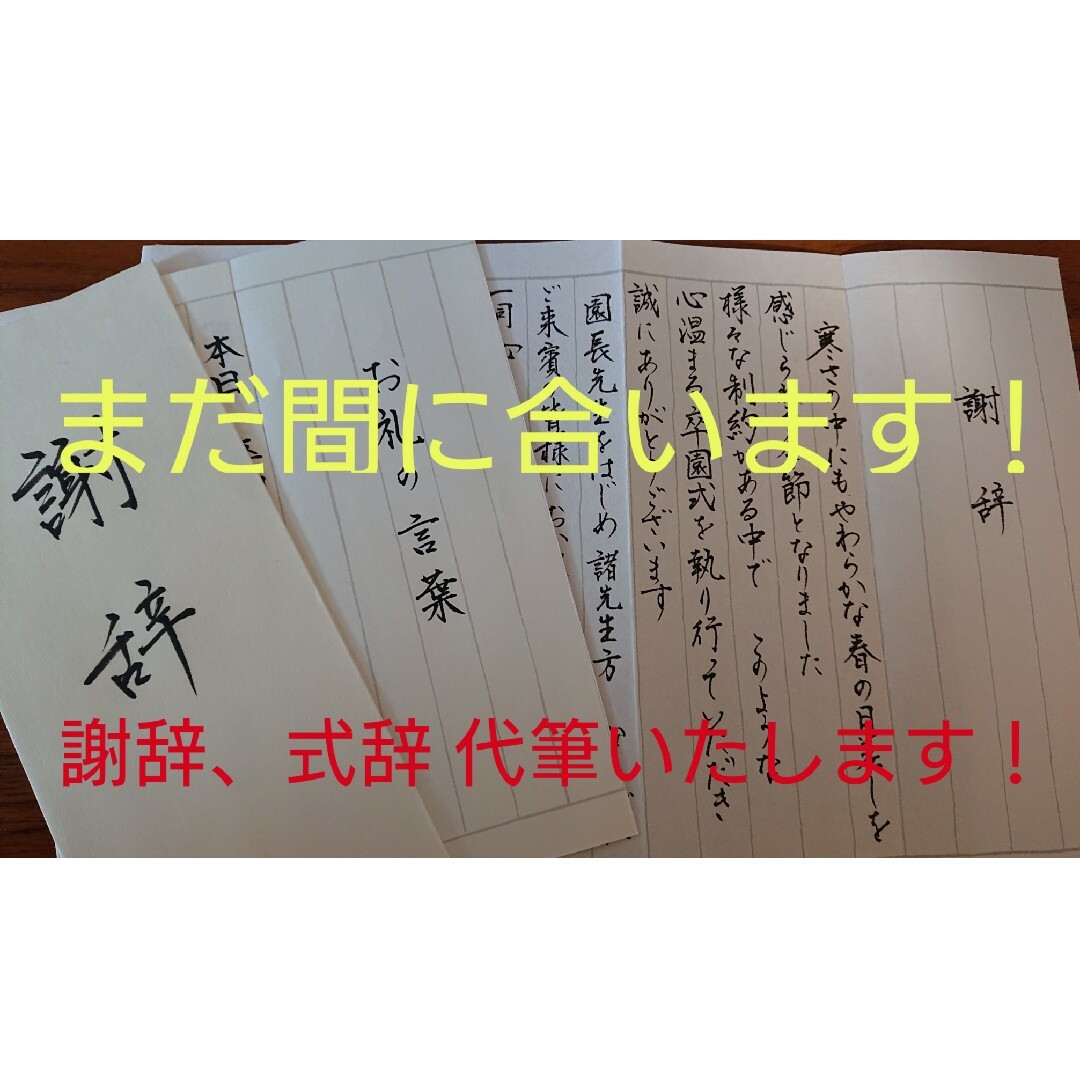 まだ間に合います！
謝辞、式辞 代筆いたします！
謝辞
寒さの中にもやわらかな春の日差しを
感じら 節となりました
様々な制約がある中で このような
心温まる卒園式を執り行っていただき
誠にありがとうございます
園長先生をはじめ 諸先生方
ご来賓 皆様に
お礼の言葉
本日
謝辞